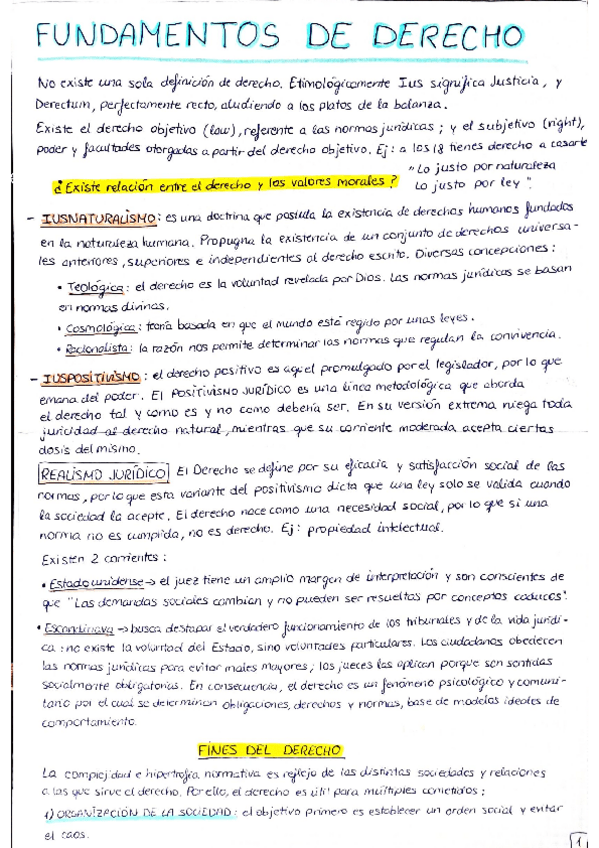 FUNDAMENTOS DE DERECHO
No existe una sola definición de derecho. Etimológicamente Ius significa Justicia, y
Derectum, perfectamente recto, aludiendo a los platos de la balanza.
Existe el derecho objetivo (law), referente a las normas jurídicas; y el subjetivo (right),
poder y facultades otorgadas a partir del derecho objetivo. Ej: a los 18 tienes derecho a casarte
¿Existe relación entre el derecho y los valores morales?
"Lo justo por naturaleza
Lo justo por ley".
- IUSNATURALISMO: es una doctrina que postula la existencia de derechos humanos fundados
en la naturaleza humana. Propugna la existencia de un conjunto de derechos universa-
les anteriores, superiores e independientes al derecho escrito. Diversas concepciones:
• Teológica: el derecho es la voluntad revelada por Dios. Las normas jurídicas se basan
en normas divinas.
• Cosmológica: teoría basada en que el mundo está regido por unas leyes.
• Racionalista: la razón nos permite determinar las normas que regulan la convivencia.
- IUSPOSITIVISMO: el derecho positivo es aquel promulgado por el legislador, por lo que
emana del poder. El POSITIVISMO JURÍDICO es una línea metodológica que aborda
el derecho tal y como es y no como debería ser. En su versión extrema niega toda
juricidad al derecho natural, mientras que su corriente moderada acepta ciertas
dosis del mismo.
REALISMO JURÍDICO El Derecho se define por su eficacia y satisfacción social de las
normas, por lo que esta variante del positivismo dicta que una ley solo es valida cuando
la sociedad la acepte. El derecho nace como una necesidad social, por lo que si una
norma no es cumplida, no es derecho. Ej: propiedad intelectual.
Existen 2 corrientes:
• Estadounidense → el juez tiene un amplio margen de interpretación y son conscientes de
que "Las demandas sociales cambian y no pueden ser resueltas por conceptos caducos".
• Escandinava → busca destapar el verdadero funcionamiento de los tribunales y de la vida jurídi-
ca: no existe la voluntad del Estado, sino voluntades particulares. Los ciudadanos obedecen
las normas jurídicas para evitar males mayores; los jueces las aplican porque son sentidas
socialmente obligatorias. En consecuencia, el derecho es un fenómeno psicológico y comuni-
tario por el cual se determinan obligaciones, derechos y normas, base de modelos ideales de
comportamiento.
FINES DEL DERECHO
La complejidad e hipertrofia normativa es reflejo de las distintas sociedades y relaciones
a las que sirve el derecho. Por ello, el derecho es útil para múltiples cometidos:
1) ORGANIZACIÓN DE LA SOCIEDAD: el objetivo primero es establecer un orden social y evitar
el caos.
1